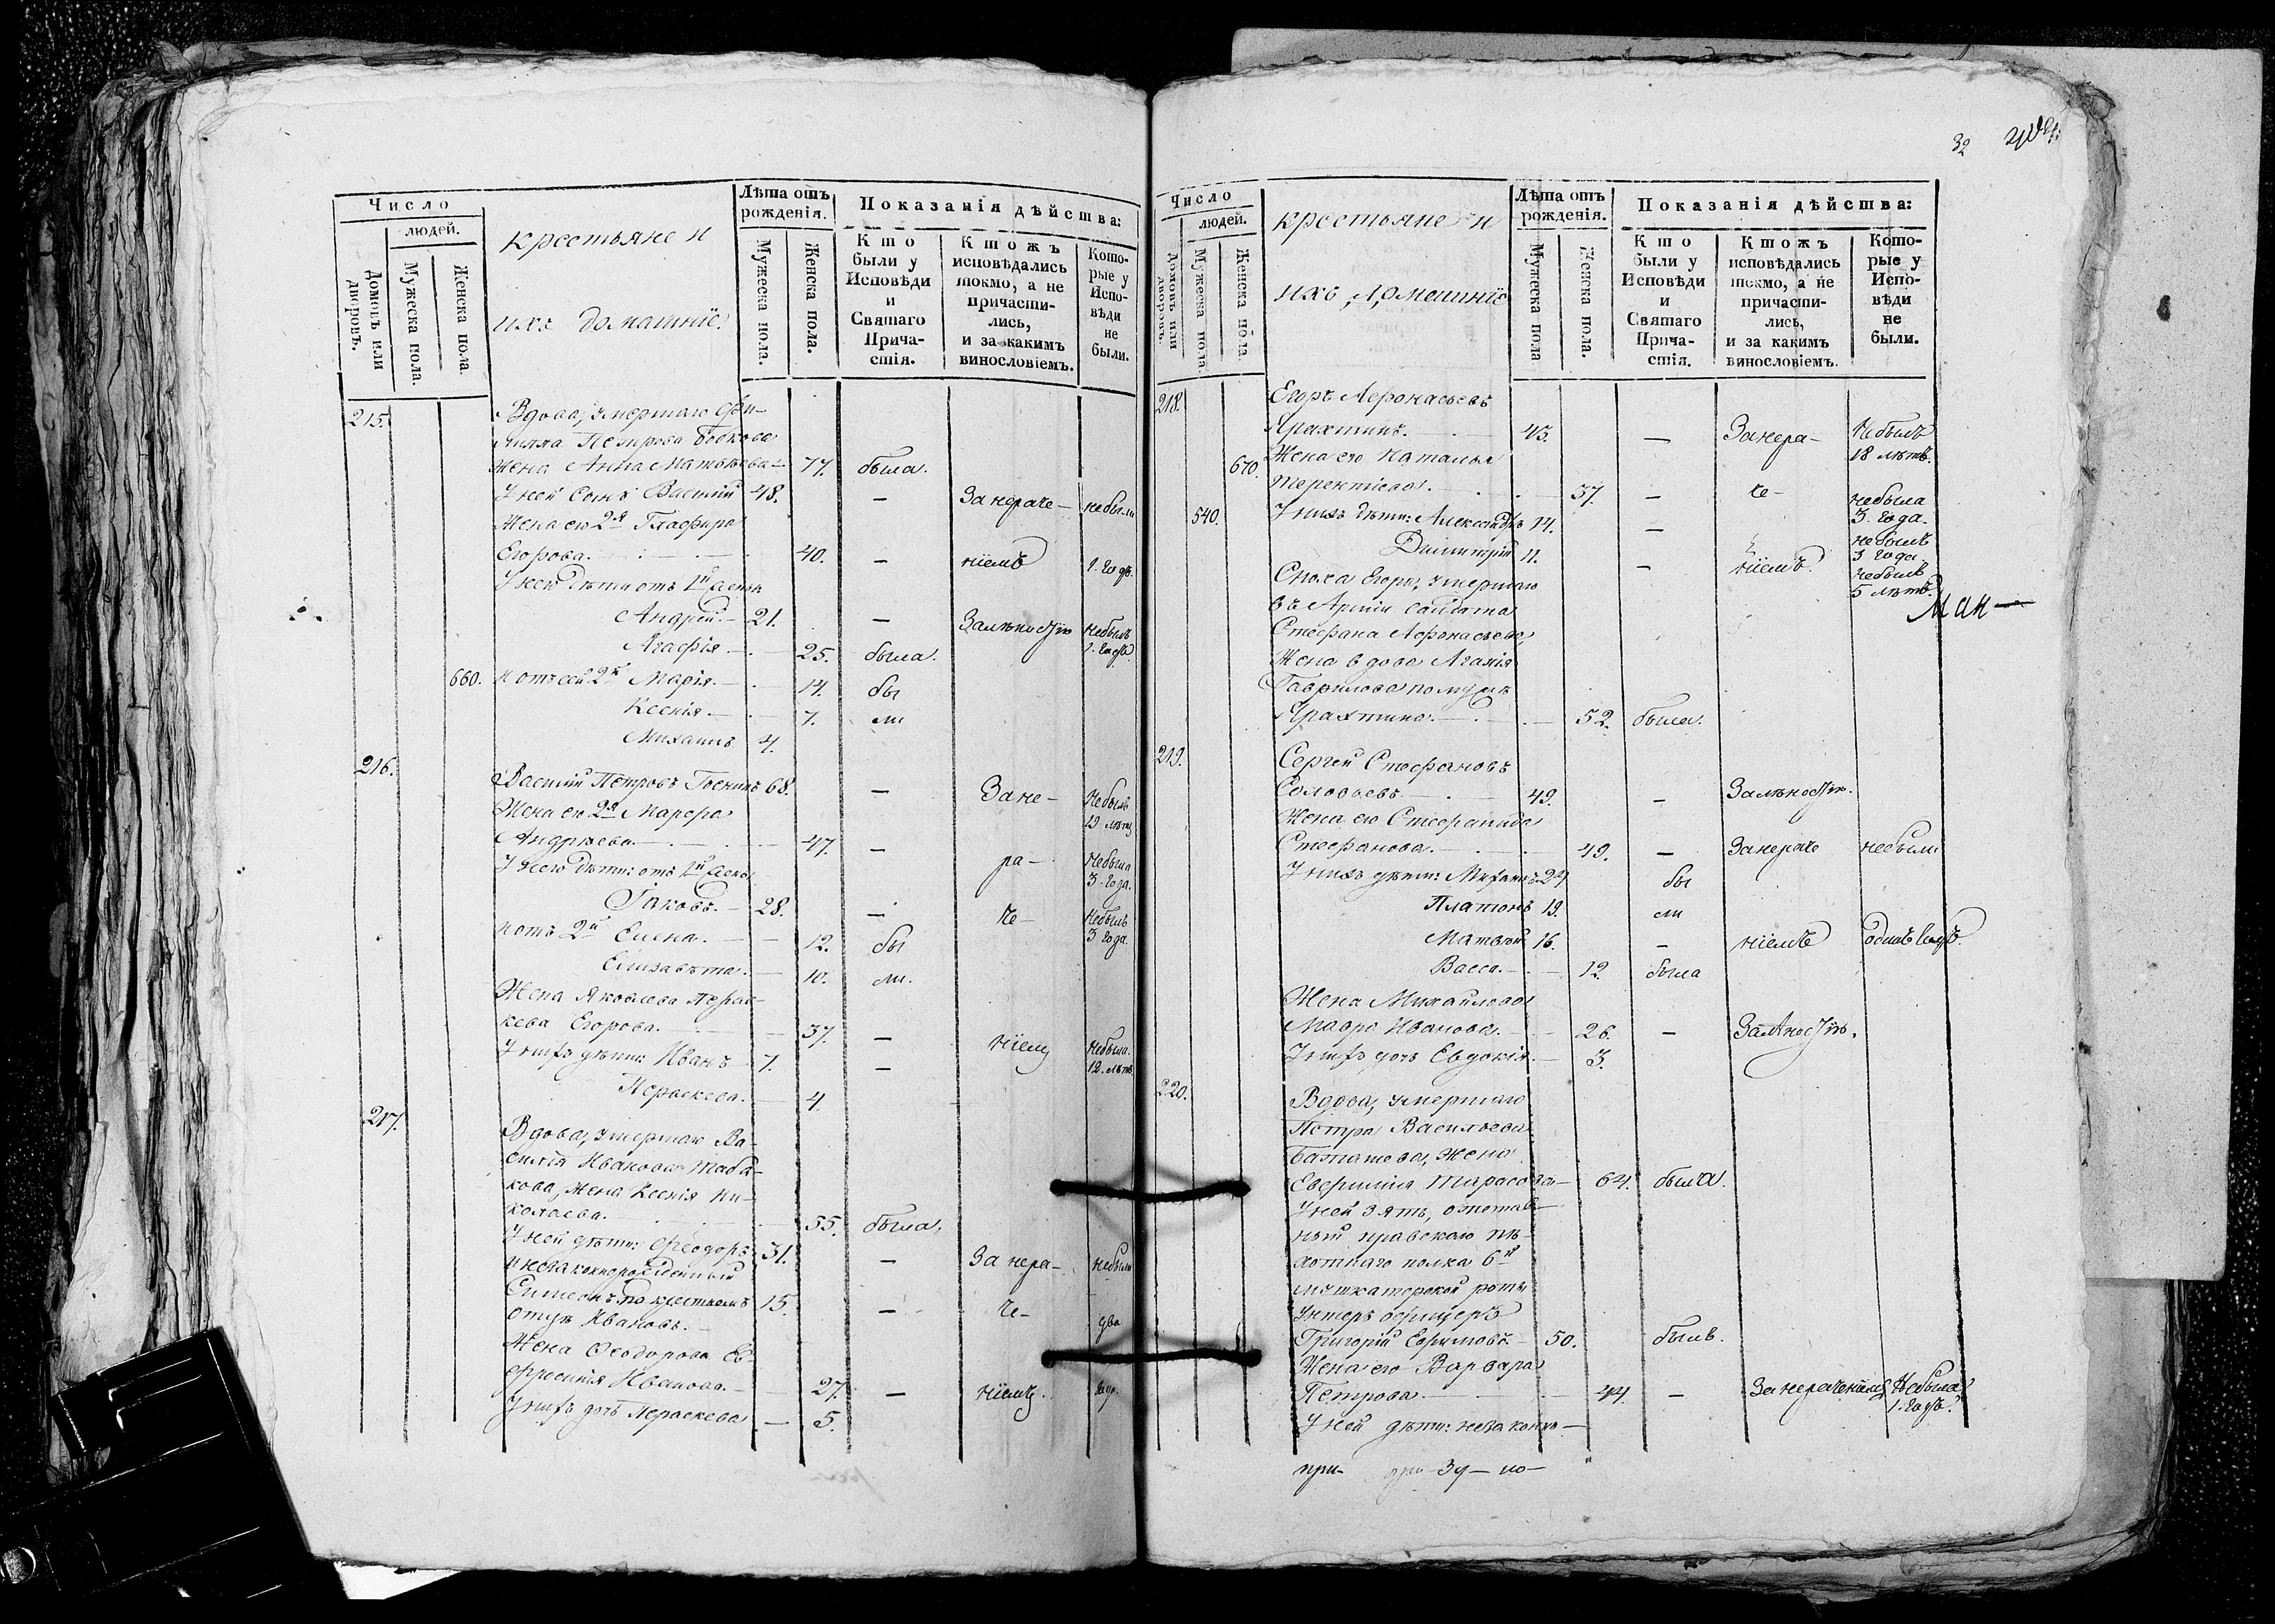 Число
людей.
Домовъ или дворовъ.
Мужеска пола.
Женска пола.
крестьяне и
ихъ домашніе.
Лѣта отъ рожденія.
Мужеска пола.
Женска пола.
Показанія дѣйства:
Кто были у Исповѣди и Святаго Причастія.
Ктожъ исповѣдались токмо, а не причастились, и за какимъ винословіемъ.
Которые у Исповѣди не были.
215. Вдова, умершаго
Петрова
жена Анна Матвѣева 77. была.
У ней сынъ Василий 48. — За нераче- небыли
Жена его 2я Глафира
Егорова. 40. — ніемъ 1. годъ.
У него дѣти отъ 1й жены
Андрей. 21. — Залѣностію небылъ 1. годъ.
Агафія 25. была.
660. и отъ сей 2й Марія. 14. бы
Ксенія. 7. ли
Михаилъ 4.
216. Василій Петровъ 68. — Зане- Небылъ 19 лѣтъ
Жена его 2я Марфа
Андреева. 47. — ра- Небыла 3. года.
У него дѣти: отъ 1й жены
Іаковъ. 28. — че- Небылъ 3 года.
и отъ 2й Елена. 12. бы
Елизавета. 10. ли.
Жена Яковлева Парас-
кева Егорова. 37. — ніемъ Небыла. 12. лѣтъ
У нихъ дѣти: Иванъ 7. —
Параскева. 4.
217. Вдова, умершаго Ва-
силія Иванова Таба-
кова, жена Ксенія Ни-
колаева. 55. была,
У ней дѣти: Феодоръ 31. — За нера- небыли
и незаконнорожденный
Симеонъ по крестному 15. — че- два
отцу Ивановъ.
Жена Феодорова Ев-
фросинія Иванова. 27. — ніемъ года.
У нихъ дочь Параскева 5.
32
Число
людей.
Домовъ или дворовъ.
Мужеска пола.
Женска пола.
крестьяне и
ихъ домашніе
Лѣта отъ рожденія.
Мужеска пола
Женска пола.
Показанія дѣйства:
Кто были у Исповѣди и Святаго Причастія.
Ктожъ исповѣдались токмо, а не причастились, и за какимъ винословіемъ.
Которые у Исповѣди не были.
218. Егоръ Афонасьевъ
Ярахтинъ. 43. — Занера- Небылъ 18 лѣтъ.
670. Жена его Наталья
Терентіева. 37. — че- небыла 3. года.
540. У нихъ дѣти: Александръ 14. — небылъ 3 года
Димитрій 11. — ніемъ. небылъ 5 лѣтъ.
Сноха Егора, умершаго
въ Арміи солдата
Стефана Афонасьева,
Жена вдова Агафія
Гаврилова по мужѣ
Ярахтина. 52. была.
219. Сергей Стефановъ
Соловьевъ. 49. — Залѣностію.
Жена его Стефанида
Стефанова. 49. — Занераче небыли
У нихъ дѣти: Михаилъ 24 бы
Платонъ 19. ли
Матвей 16. — ніемъ одинъ годъ.
Васса. 12. была
Жена Михайлова
Мавра Иванова. 26. — Залѣностію.
У нихъ дочь Евдокія. 3.
220. Вдова, умершаго
Петра Васильева
жена
Евфимія Тарасова 64. была.
У ней зять, отстав-
ный пѣ-
хотнаго полка 6й
мушкатерской роты
унтеръ офицеръ
Григорій Ефимовъ 50. былъ.
Жена его Варвара
Петрова 44. — Занераченіемъ Небыла 1. годъ.
У ней дѣти: незаконно-
при-